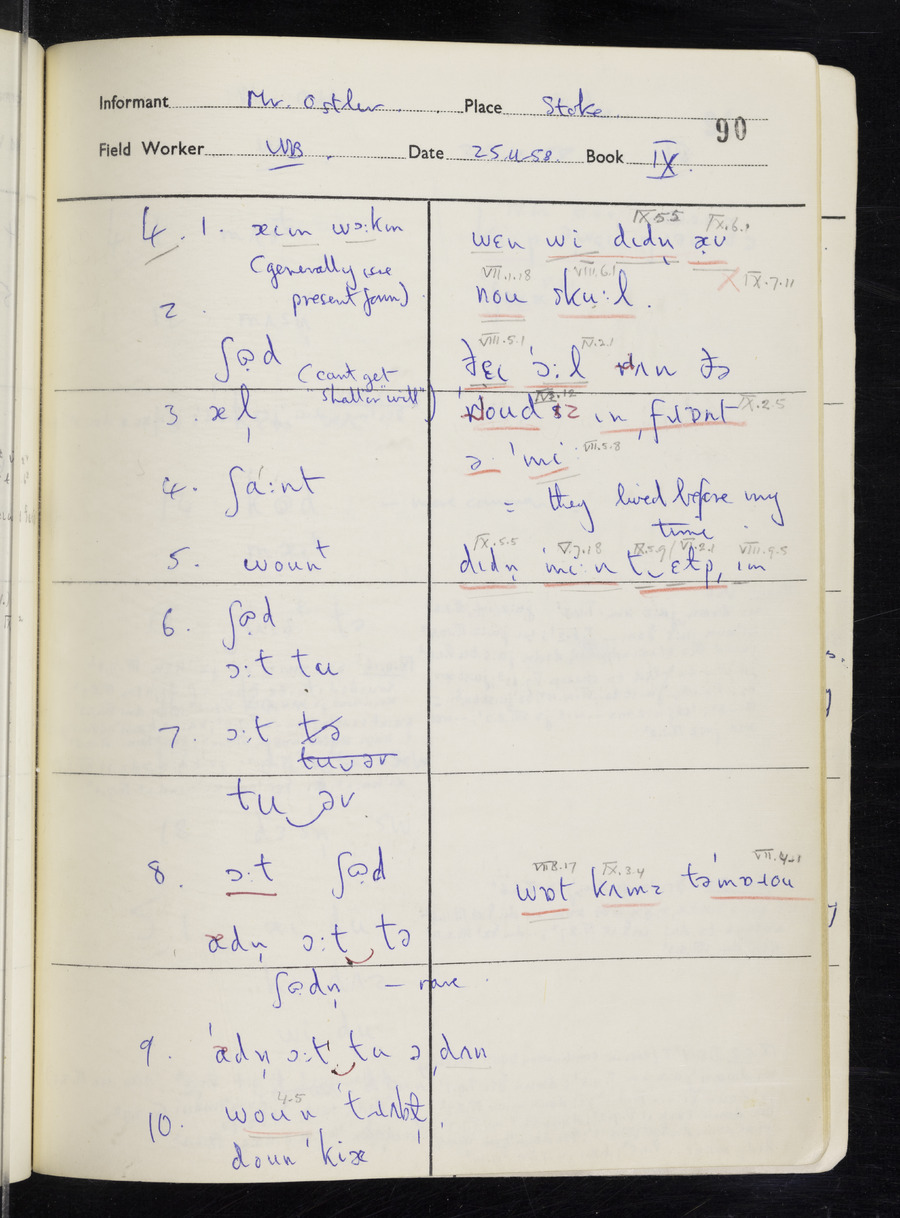 Informant Mr. Ostler Place Stoke
90
Field Worker Date 25.11.58. Book IX.
4. 1. æɪm wɔ:kɪn
(generally use
present form)
2.
ʃɒd
(can't get
"shall" or "will")
3. æl̩
4. ʃɑ:nt
5. wount
6. ʃɒd
ɔ:t tu
7. ɔ:t tə
tuvər
tu‿əv
8. ɔ:t ʃɒd
ædn̩ ɔ:t‿tə
ʃɒdn̩ — rare
9. ˈædn̩ ɔ:t‿tu ə dʌn
4.5
10. woun ˈtɹʌbl̩
doun ˈkiæ
IX.5.5 IX.6.1
wɛn wi dɪdn̩ æv
VII.1.18 VIII.6.1 X IX.7.11
nou sku:l.
VIII.5.1 IV.2.1
ðɛɪ ˈɔ:l ə
IX.2.5
ɪn ˌfɹɒnt
ə ˈmi VII.5.8
= they lived before my
time
IX.5.5 V.7.18 VIII.9.5
dɪdn̩ mi:n t‿ɛlp, ɪm
VII.8.17 IX.3.4 VII.4.1
wɒt kʌmz təˈmɒɹou